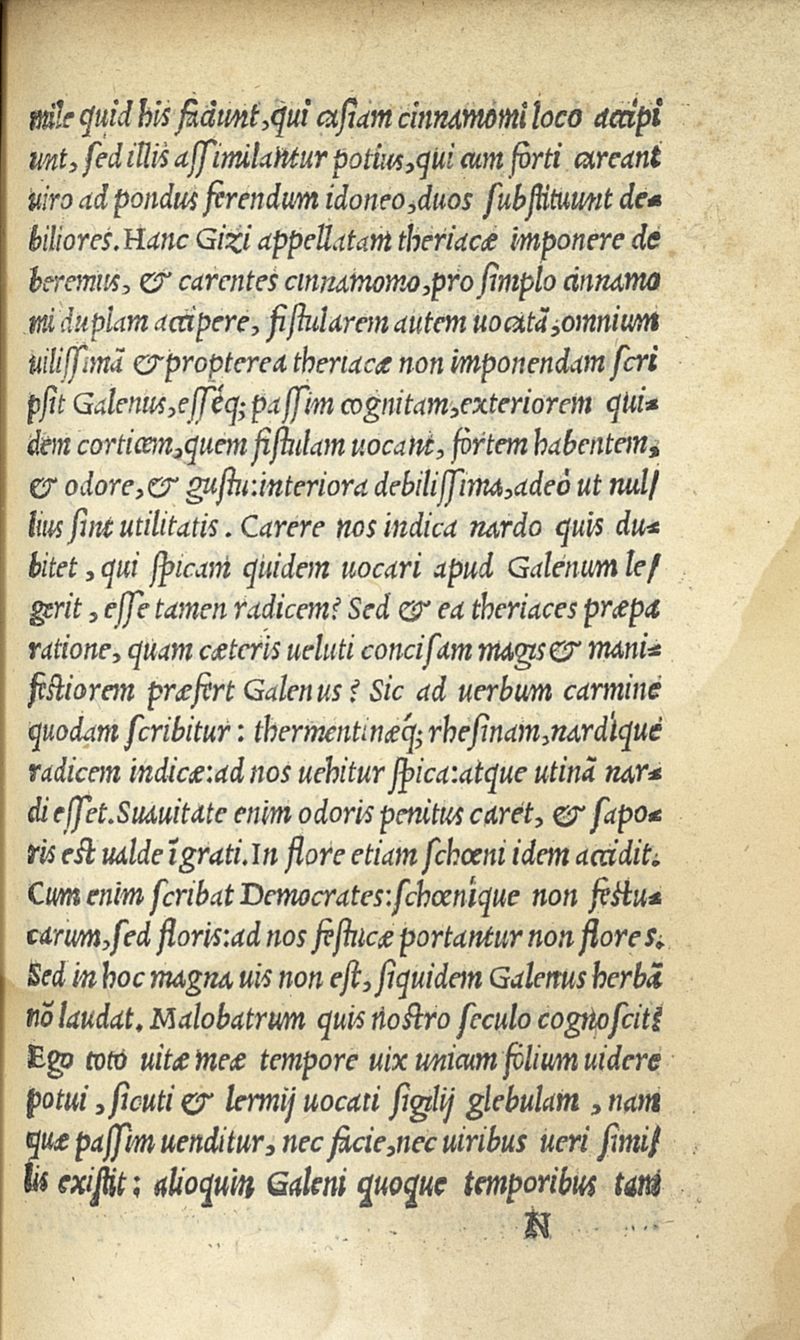 mile quid his faciunt, qui casiam cinnamomi loco accipi
unt, sed illis assimilantur potius, qui cum forti careant
uiro ad pondus ferendum idoneo, duos substituunt de-
biliores. Hanc Gizi appellatam theriacæ imponere de
beremus, & carentes cinnamomo, pro simplo cinnamo
mi duplam accipere, fistularem autem uocatã, omnium
uilissimã & propterea theriacæ non imponendam scri
psit Galenus, esséq; passim cognitam, exteriorem qui-
dem corticem, quem fistulam uocant, fortem habentem,
& odore, & gustu: interiora debilissima, adeò ut nul/
lius sint utilitatis. Carere nos indica nardo quis du-
bitet, qui spicam quidem uocari apud Galenum le/
gerit, esse tamen radicem? Sed & ea theriaces præpa
ratione, quam cæteris ueluti concisam magis & mani-
festiorem præfert Galenus? Sic ad uerbum carmine
quodam scribitur: thermentinæq́; rhesinam, nardíque
radicem indicæ: ad nos uehitur spica: atque utinã nar-
di esset. Suauitate enim odoris penitus caret, & sapo-
ris est ualde ĩgrati. In flore etiam schœni idem accidit.
Cum enim scribat Democrates: schœníque non festu-
carum, sed floris: ad nos festucæ portantur non flores.
Sed in hoc magna uis non est, siquidem Galenus herbã
nõ laudat. Malobatrum quis nostro seculo cognoscit?
Ego toto uitæ meæ tempore uix unicum folium uidere
potui, sicuti & lermij uocati sigilij glebulam, nam
quæ passim uenditur, nec facie, nec uiribus ueri simi/
lis existit: alioquin Galeni quoque temporibus tam
N